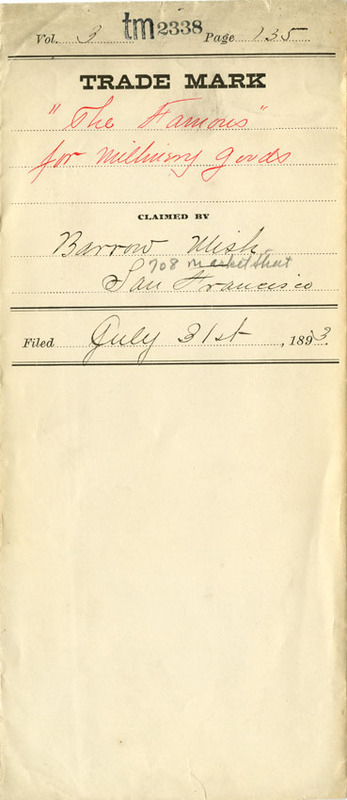 Vol. 3 tm 2338 Page 135
TRADE MARK
"The Famous"
for millinery goods
CLAIMED BY
Barrow Mish
708 market street
San Francisco
Filed July 31st, 1893.